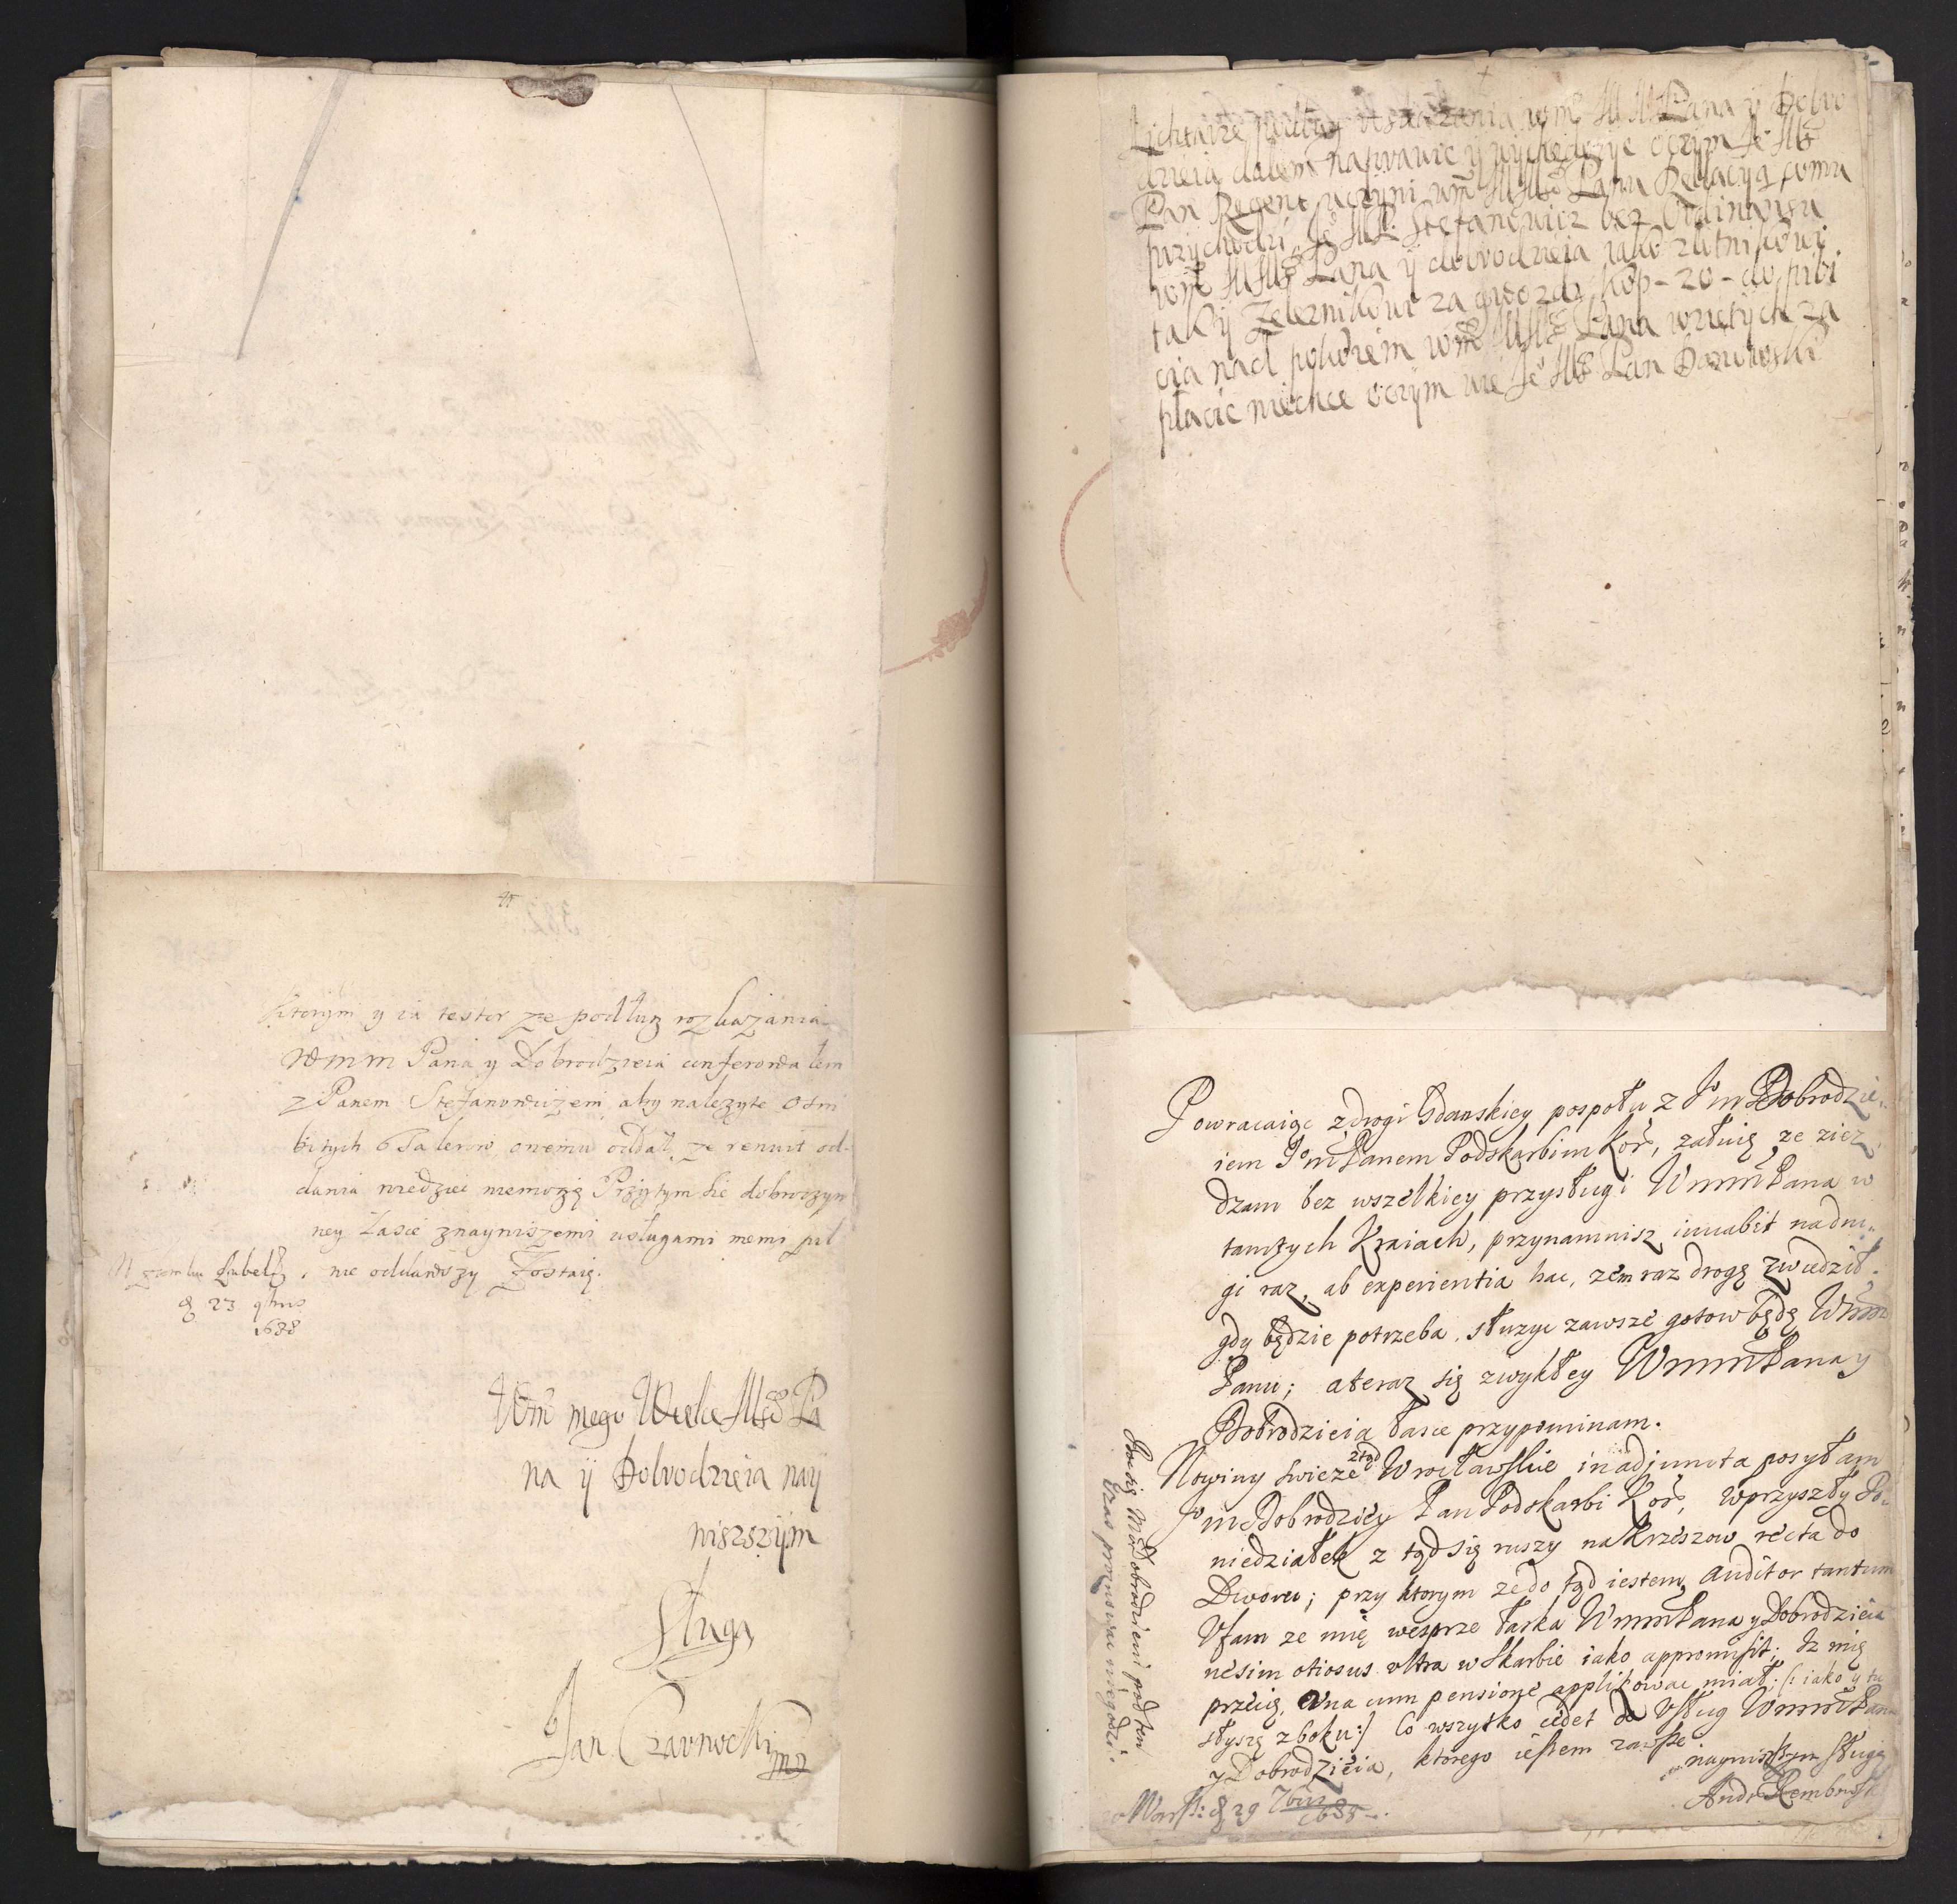 którym y ia testor ze podług rozkazania
WMM Pana y Dobrodzieia conferowałem
z Panem Stefanowiczem, aby należyte ośm
bitych Talerow onemu oddał, ze renuit od-
dania niedziei niemoze Przytym sie dobroczyn
ney Łasce znayniszemi usługami memi pil
nie oddawszy Zostaię.
W zamku Lubel:
d 23 9bris
1688
Wm mego Wielce Mśo Pa
na ÿ Dobrodzieia naÿ
niszszÿm
Sługą
Jan Czarnocki mp
Lichtarze podług wskazania wm MMPana ÿ Dobro
dzieia dałem naprawic ÿ wychędożyc oczym Je Mś
Pan Regent uczyni wm MMś Panu Relacyą, komu
przychodzi Je MP. Stefanowicz bez Ordinansu
wm MMś Pana ÿ dobrodzieia iako złitnikowi
tak ÿ Zeleznikowi za gwozdzi kop - 20 - do pibi
cia nad pokoiem wm MMś Pana wziętych za
płacic niechce oczym wie Je Mś Pan Danowski
Powracaiąc z drogi Gdanskiey pospołu z Jm Dobrodzie-
iem Jm Panem Podskarbim Kor, załuię ze ziez-
dzam bez wszelkiey przysługi WmmPana w
tamtych Kraiach, przynamnisz iuuabit na dru-
gi raz, ab experientia hac, zem raz drogę zwiedził.
gdy będzie potrzeba, słuzyc zawsze gotow będę Wmm
Panu; ateraz się zwykłey WmmPana y
Dobrodzieia łasce przypominam.
Nowiny swieze ztąd Wrocławskie in adjuncta posyłam
Jm Dobrodziey Pan Podskarbi Kor, w przyszły Po-
niedziałek z tąd się ruszy na Krzeszow recta do
Dworu; przy ktorym ze do tąd iestem Auditor tantum
Ufam ze mię wesprze łaska WmmPana y Dobrodzieia
ne sim otiosus ultra w Skarbie iako appromisit; Iz mię
przecię, una cum pensione applikowac miał; (: iako y tu
słyszę z boku:) Co wszytko cedet do Usług WmmPana
y Dobrodzieia, ktorego iestem zawsze nayniszszym sługą
Andr Rembowski
z Warsz: d 29 7bris 1688
Boć się Mm Dobrodzieiu pod ten
czas proznowac niegodzi.